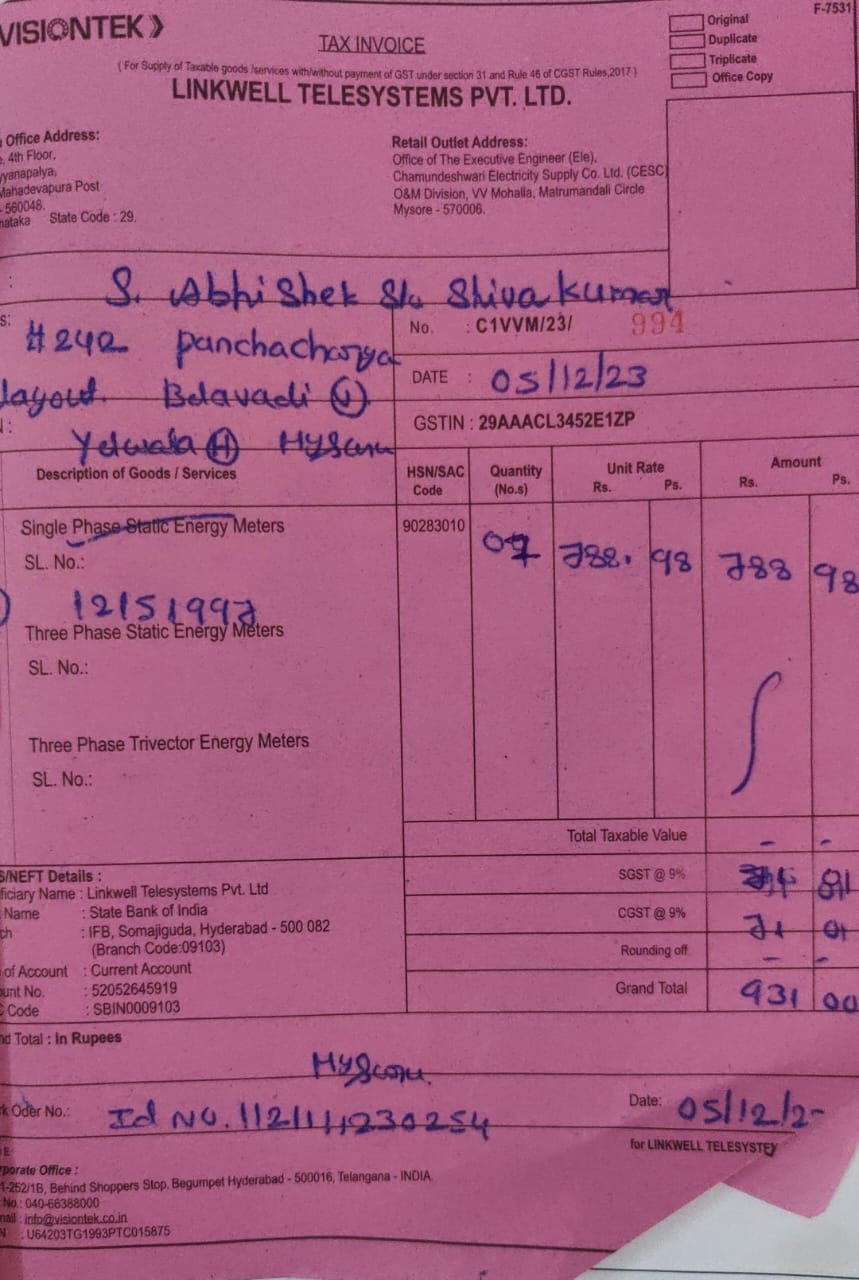 VISIONTEK
F-7531
TAX INVOICE
Original
Duplicate
Triplicate
Office Copy
( For Supply of Taxable goods /services with/without payment of GST under section 31 and Rule 46 of CGST Rules,2017 )
LINKWELL TELESYSTEMS PVT. LTD.
Office Address:
4th Floor,
yyanapalya,
Mahadevapura Post
- 560048.
nataka State Code : 29.
Retail Outlet Address:
Office of The Executive Engineer (Ele),
Chamundeshwari Electricity Supply Co. Ltd. (CESC)
O&M Division, VV Mohalla, Matrumandali Circle
Mysore - 570006.
S. Abhishek S/o Shivakumar
#242 panchacharya
layout. Belavadi (V)
Yelwala (H) Mysoru
No. : C1VVM/23/ 994
DATE : 05/12/23
GSTIN : 29AAACL3452E1ZP
Description of Goods / Services HSN/SAC Code Quantity (No.s) Unit Rate Rs. Ps. Amount Rs. Ps.
Single Phase Static Energy Meters 90283010 788. 98 788 98
SL. No.:
12151997
Three Phase Static Energy Meters
SL. No.:
Three Phase Trivector Energy Meters
SL. No.:
Total Taxable Value - -
SGST @ 9%
CGST @ 9% 71 01
Rounding off - -
Grand Total 931 00
S/NEFT Details :
ficiary Name : Linkwell Telesystems Pvt. Ltd
Name : State Bank of India
ch : IFB, Somajiguda, Hyderabad - 500 082
(Branch Code:09103)
of Account : Current Account
unt No. : 52052645919
C Code : SBIN0009103
nd Total : In Rupees
Mysoru.
rk Oder No.: Id No. 112/111230254
Date: 05/12/2
for LINKWELL TELESYSTE
porate Office :
1-252/1B, Behind Shoppers Stop, Begumpet Hyderabad - 500016, Telangana - INDIA
No.: 040-66388000
mail : info@visiontek.co.in
N : U64203TG1993PTC015875